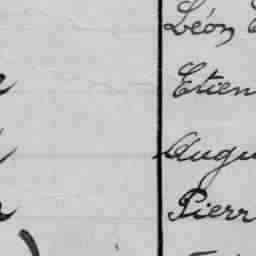 Léon,
Etien
Augu
Pierr